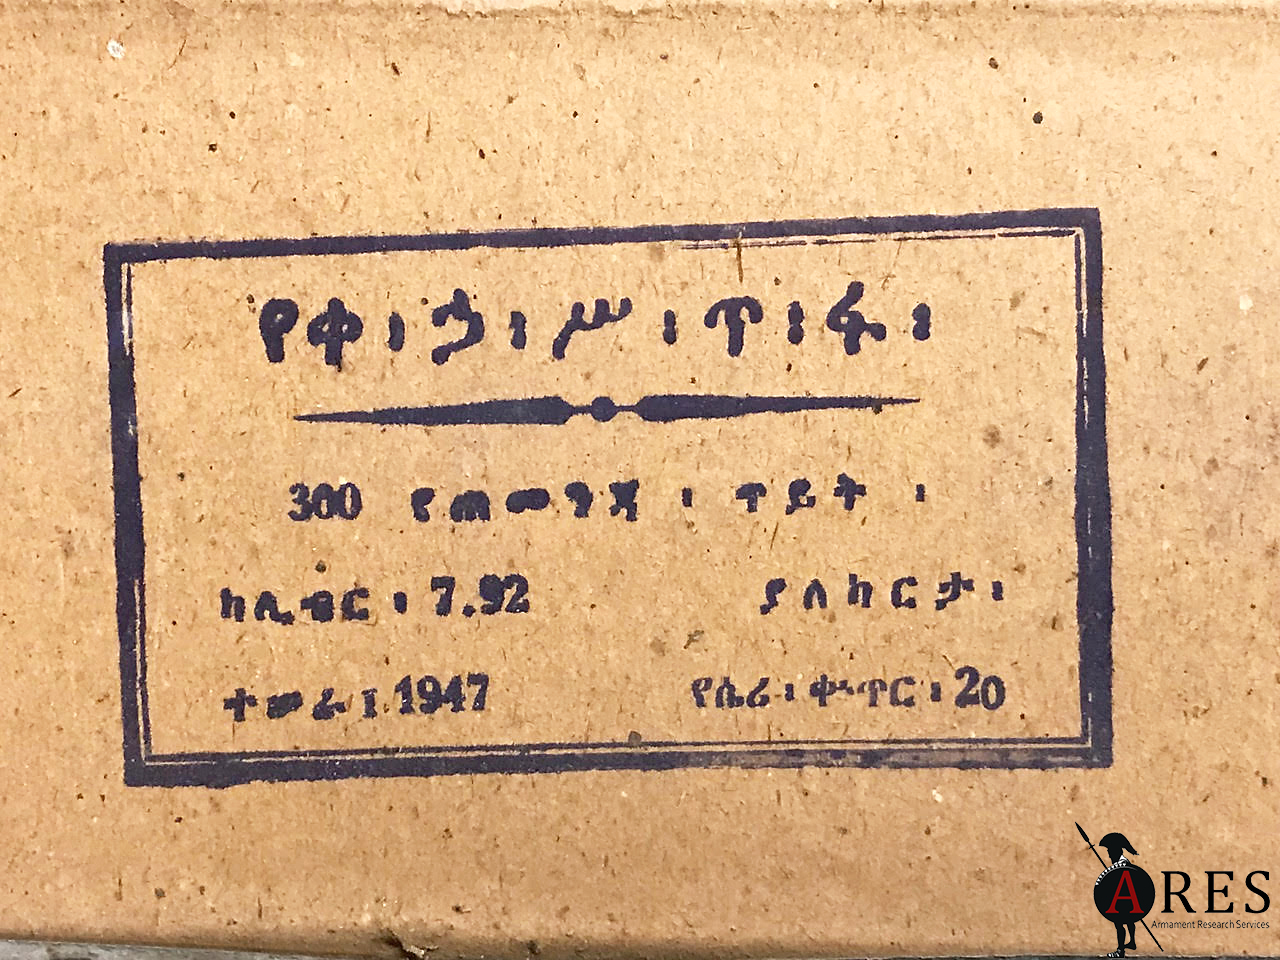 የቀ፡ኃ፡ሥ፡ጥ፡ፋ፡
300 የጠመንጃ፡ጥይት፡
ካሊቴር፡7.92 ያለካርታ፡
ተመራ፤1947 የሴሪ፡ቀጥር፡20
ARES
Armament Research Services